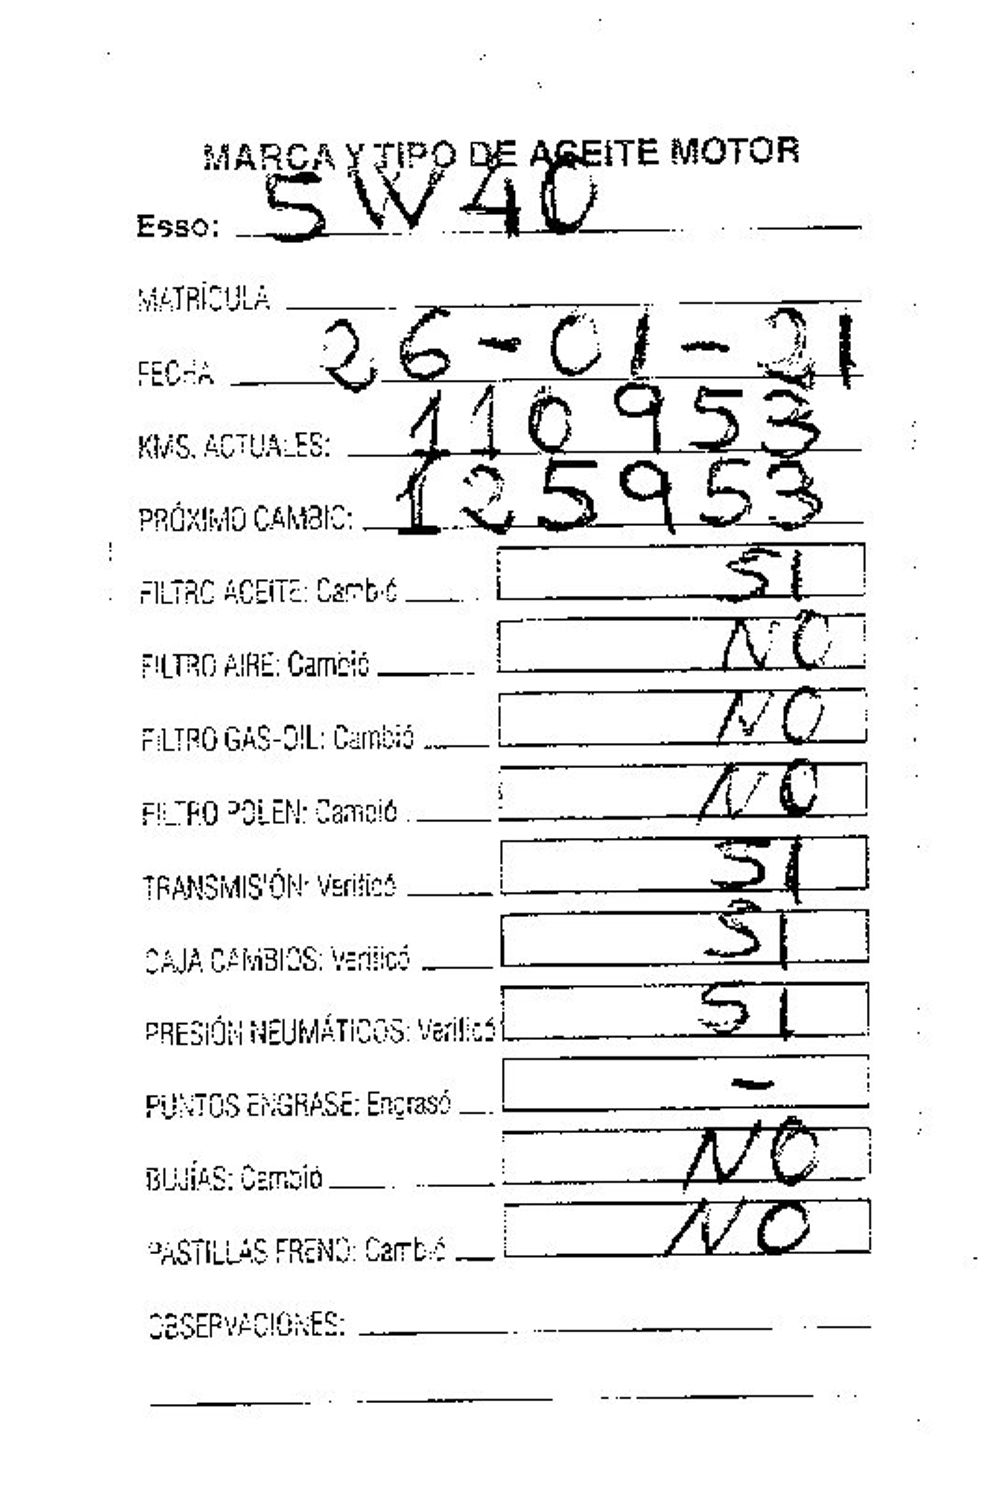 MARCA Y TIPO DE ACEITE MOTOR
Esso: 5W40
MATRÍCULA
FECHA 26-01-21
KMS. ACTUALES: 110953
PRÓXIMO CAMBIO: 125953
FILTRO ACEITE: Cambió SI
FILTRO AIRE: Cambió NO
FILTRO GAS-OIL: Cambió NO
FILTRO POLEN: Cambió NO
TRANSMISIÓN: Verificó SI
CAJA CAMBIOS: Verificó SI
PRESIÓN NEUMÁTICOS: Verificó SI
PUNTOS ENGRASE: Engrasó -
BUJÍAS: Cambió NO
PASTILLAS FRENO: Cambió NO
OBSERVACIONES: